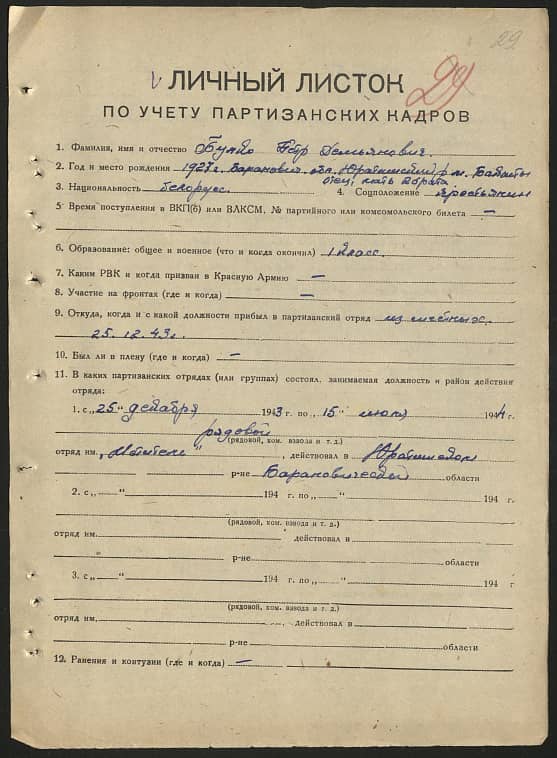 29
29
ЛИЧНЫЙ ЛИСТОК
ПО УЧЕТУ ПАРТИЗАНСКИХ КАДРОВ
1. Фамилия, имя и отчество Бунко Петр Демьянович.
2. Год и место рождения 1927 г. Баранович. обл. Юратишский р-н.
отец, мать 2 брата
3. Национальность белорус. 4. Соцположение крестьянин
5 Время поступления в ВКП(б) или ВЛКСМ, № партийного или комсомольского билета —
6. Образование: общее и военное (что и когда окончил) 1 класс.
7. Каким РВК и когда призван в Красную Армию —
8. Участие на фронтах (где и когда) —
9. Откуда, когда и с какой должности прибыл в партизанский отряд из местных.
25.12.43 г.
10. Был ли в плену (где и когда) —
11. В каких партизанских отрядах (или группах) состоял, занимаемая должность и район действия
отряда:
1. с „25“ декабря 1943 г. по „15“ июля 1944 г.
рядовой
(рядовой, ком. взвода и т. д.)
отряд им. , действовал в Юратишском
р-не Барановической области
2. с „ “ 194 г. по „ “ 194 г.
(рядовой, ком. взвода и т. д.)
отряд им. , действовал в
р-не области
3. с „ “ 194 г. по „ “ 194 г
(рядовой, ком. взвода и т. д.)
отряд им. , действовал в
р-не области
12. Ранения и контузии (где и когда) —